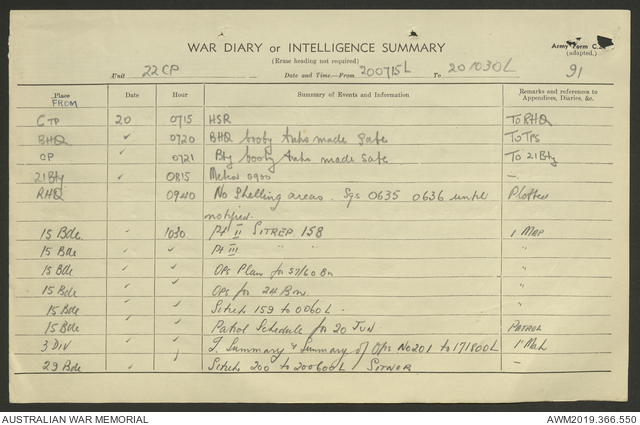 WAR DIARY or INTELLIGENCE SUMMARY
(Erase heading not required)
Army Form C.2
Unit 22 CP Date and Time.—From 200715L To 201030L 91
Place Date Hour Summary of Events and Information Remarks and references to Appendices, Diaries, &c.
FROM
CTP 20 0715 HSR To RHQ
BHQ ✓ 0720 BHQ booby traps made safe To TPS
CP 0721 Bty booby traps made safe To 21 Bty
21 Bty ✓ 0815 Meteor 0900 —
RHQ 0940 No Shelling areas. Sqs 0635 0636 until Plotted
notified.
15 Bde ✓ 1030 Pt II SITREP 158 1 MAP
15 Bde ✓ ✓ Pt III " " "
15 Bde ✓ ✓ Ops Plan for 57/60 Bn "
15 Bde ✓ ✓ Ops for 24 Bn. "
15 Bde ✓ ✓ Sitrep 159 to 0060L. "
15 Bde ✓ ✓ Patrol Schedule for 20 JUN PATROL
3 DIV ✓ ✓ I. Summary & Summary of Ops No 201 to 171800L 1 Map
29 Bde ✓ Sitrep 200 to 200600L SITNOR —
AUSTRALIAN WAR MEMORIAL AWM2019.366.550